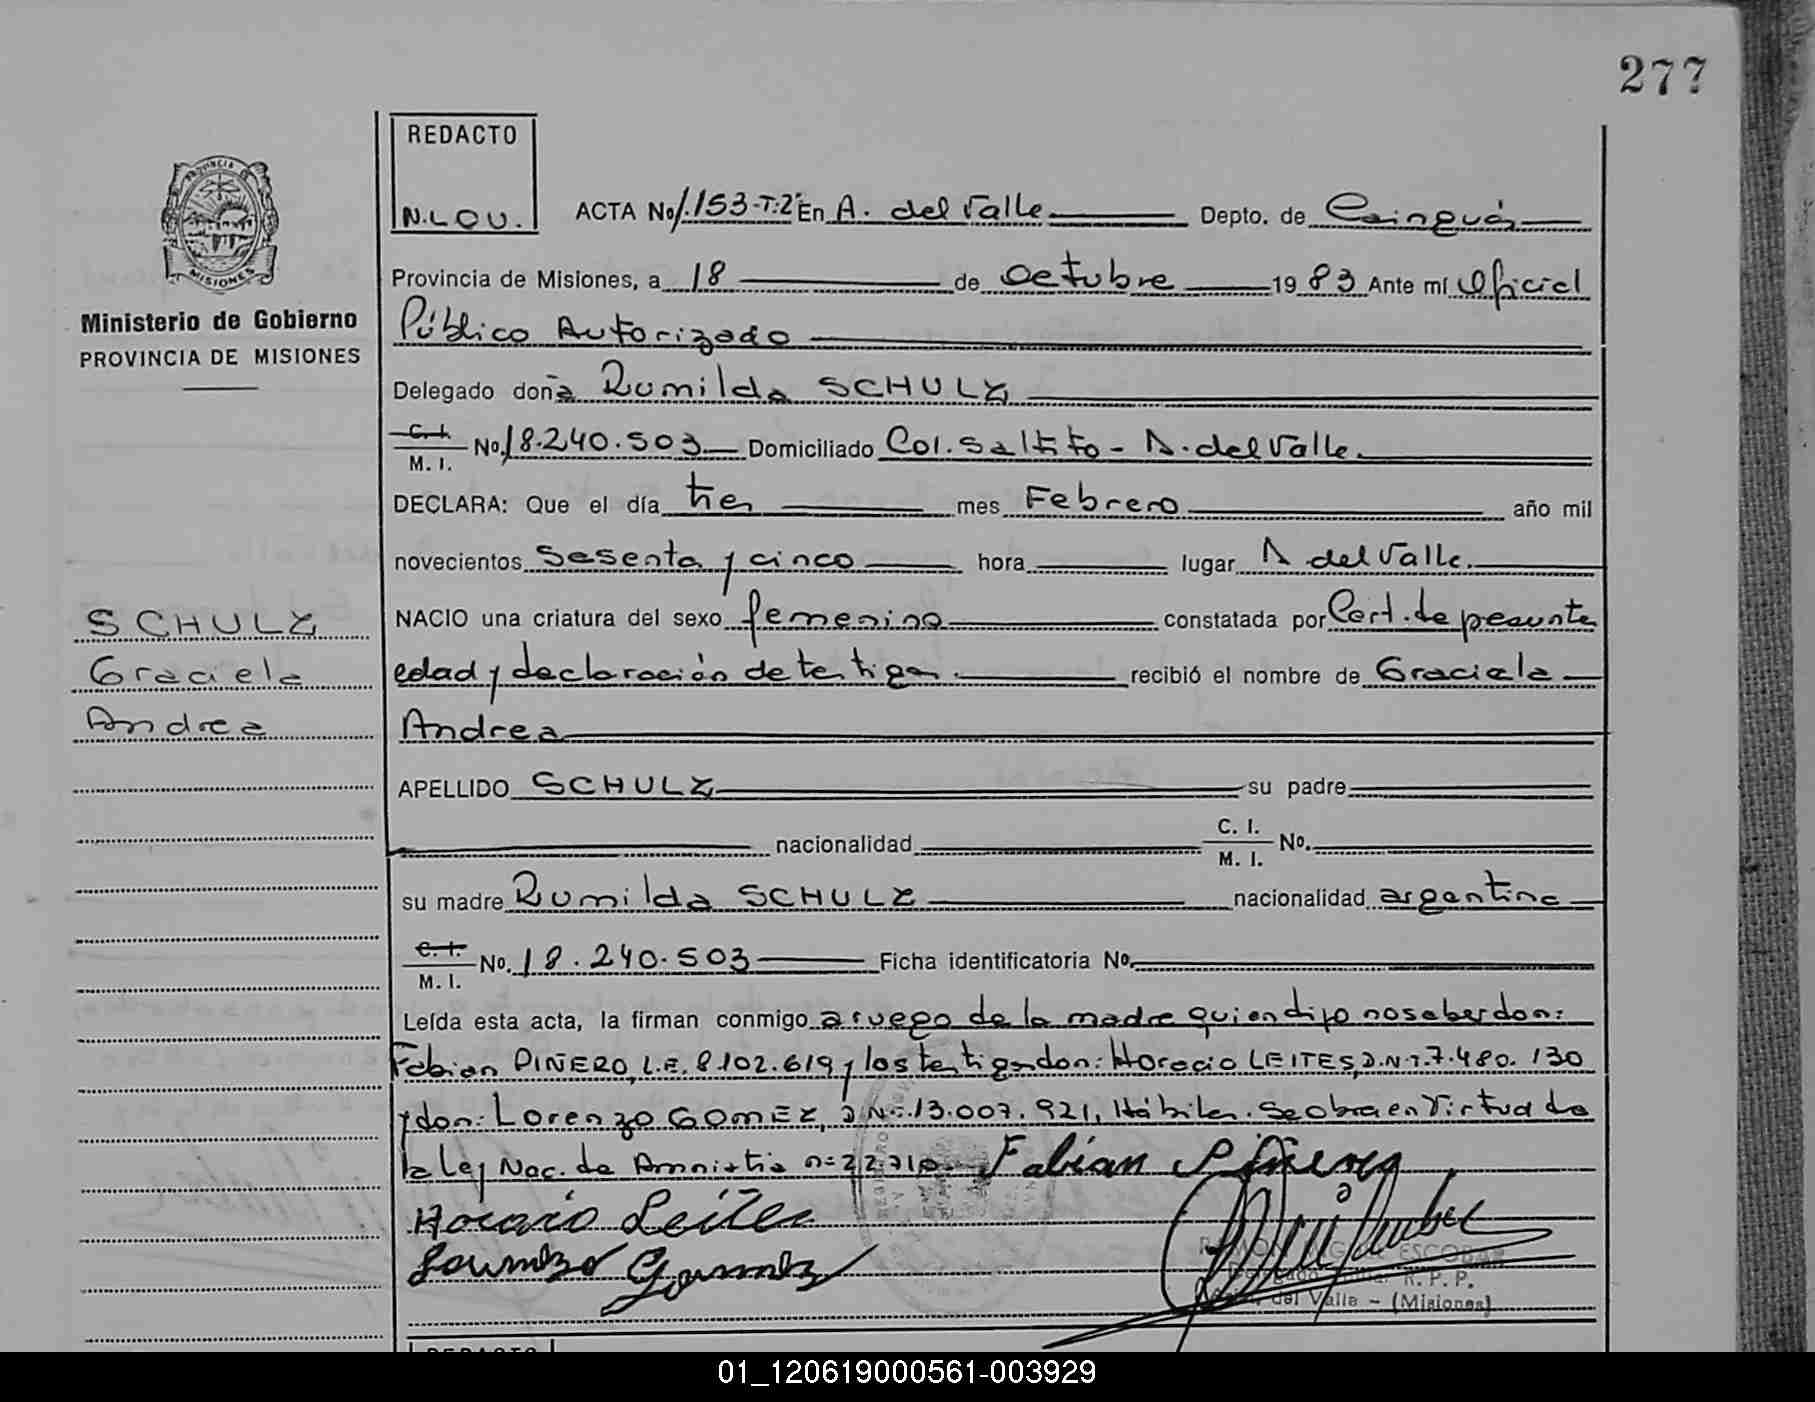 277
REDACTO
N.LOU.
ACTA No 1.153-T.2º En A. del Valle Depto. de Cainguás
Provincia de Misiones, a 18 de octubre 1983 Ante mí Oficial
Ministerio de Gobierno
PROVINCIA DE MISIONES
Público Autorizado
Delegado doña Rumilda SCHULZ
C. I. M. I. No. 18.240.503 Domiciliado Col. Saltito - A. del Valle.
DECLARA: Que el día tres mes Febrero año mil
novecientos sesenta y cinco hora lugar A. del Valle.
SCHULZ
Graciela
Andrea
NACIO una criatura del sexo femenino constatada por Cert. de presunta
edad y declaración de testigos. recibió el nombre de Graciela
Andrea
APELLIDO SCHULZ su padre
nacionalidad C. I. M. I. No.
su madre Rumilda SCHULZ nacionalidad argentina
C. I. M. I. No. 18.240.503 Ficha identificatoria No.
Leída esta acta, la firman conmigo a ruego de la madre quien dijo no saber don:
Fabian PIÑERO, L.E. 8.102.619 y los testigos don: Horacio LEITES, D.N.I. 7.480.130
y don: Lorenzo GOMEZ, D.N.I. 13.007.921, Hábiles. Se obra en Virtud de
la Ley Nac. de Amnistia nº 22.710. Fabian Piñero
Horacio Leites
Lorenzo Gomez
RAMON ESCOBAR
Delegado R. P. P.
del Valle - (Misiones)
REDACTO
01_120619000561-003929